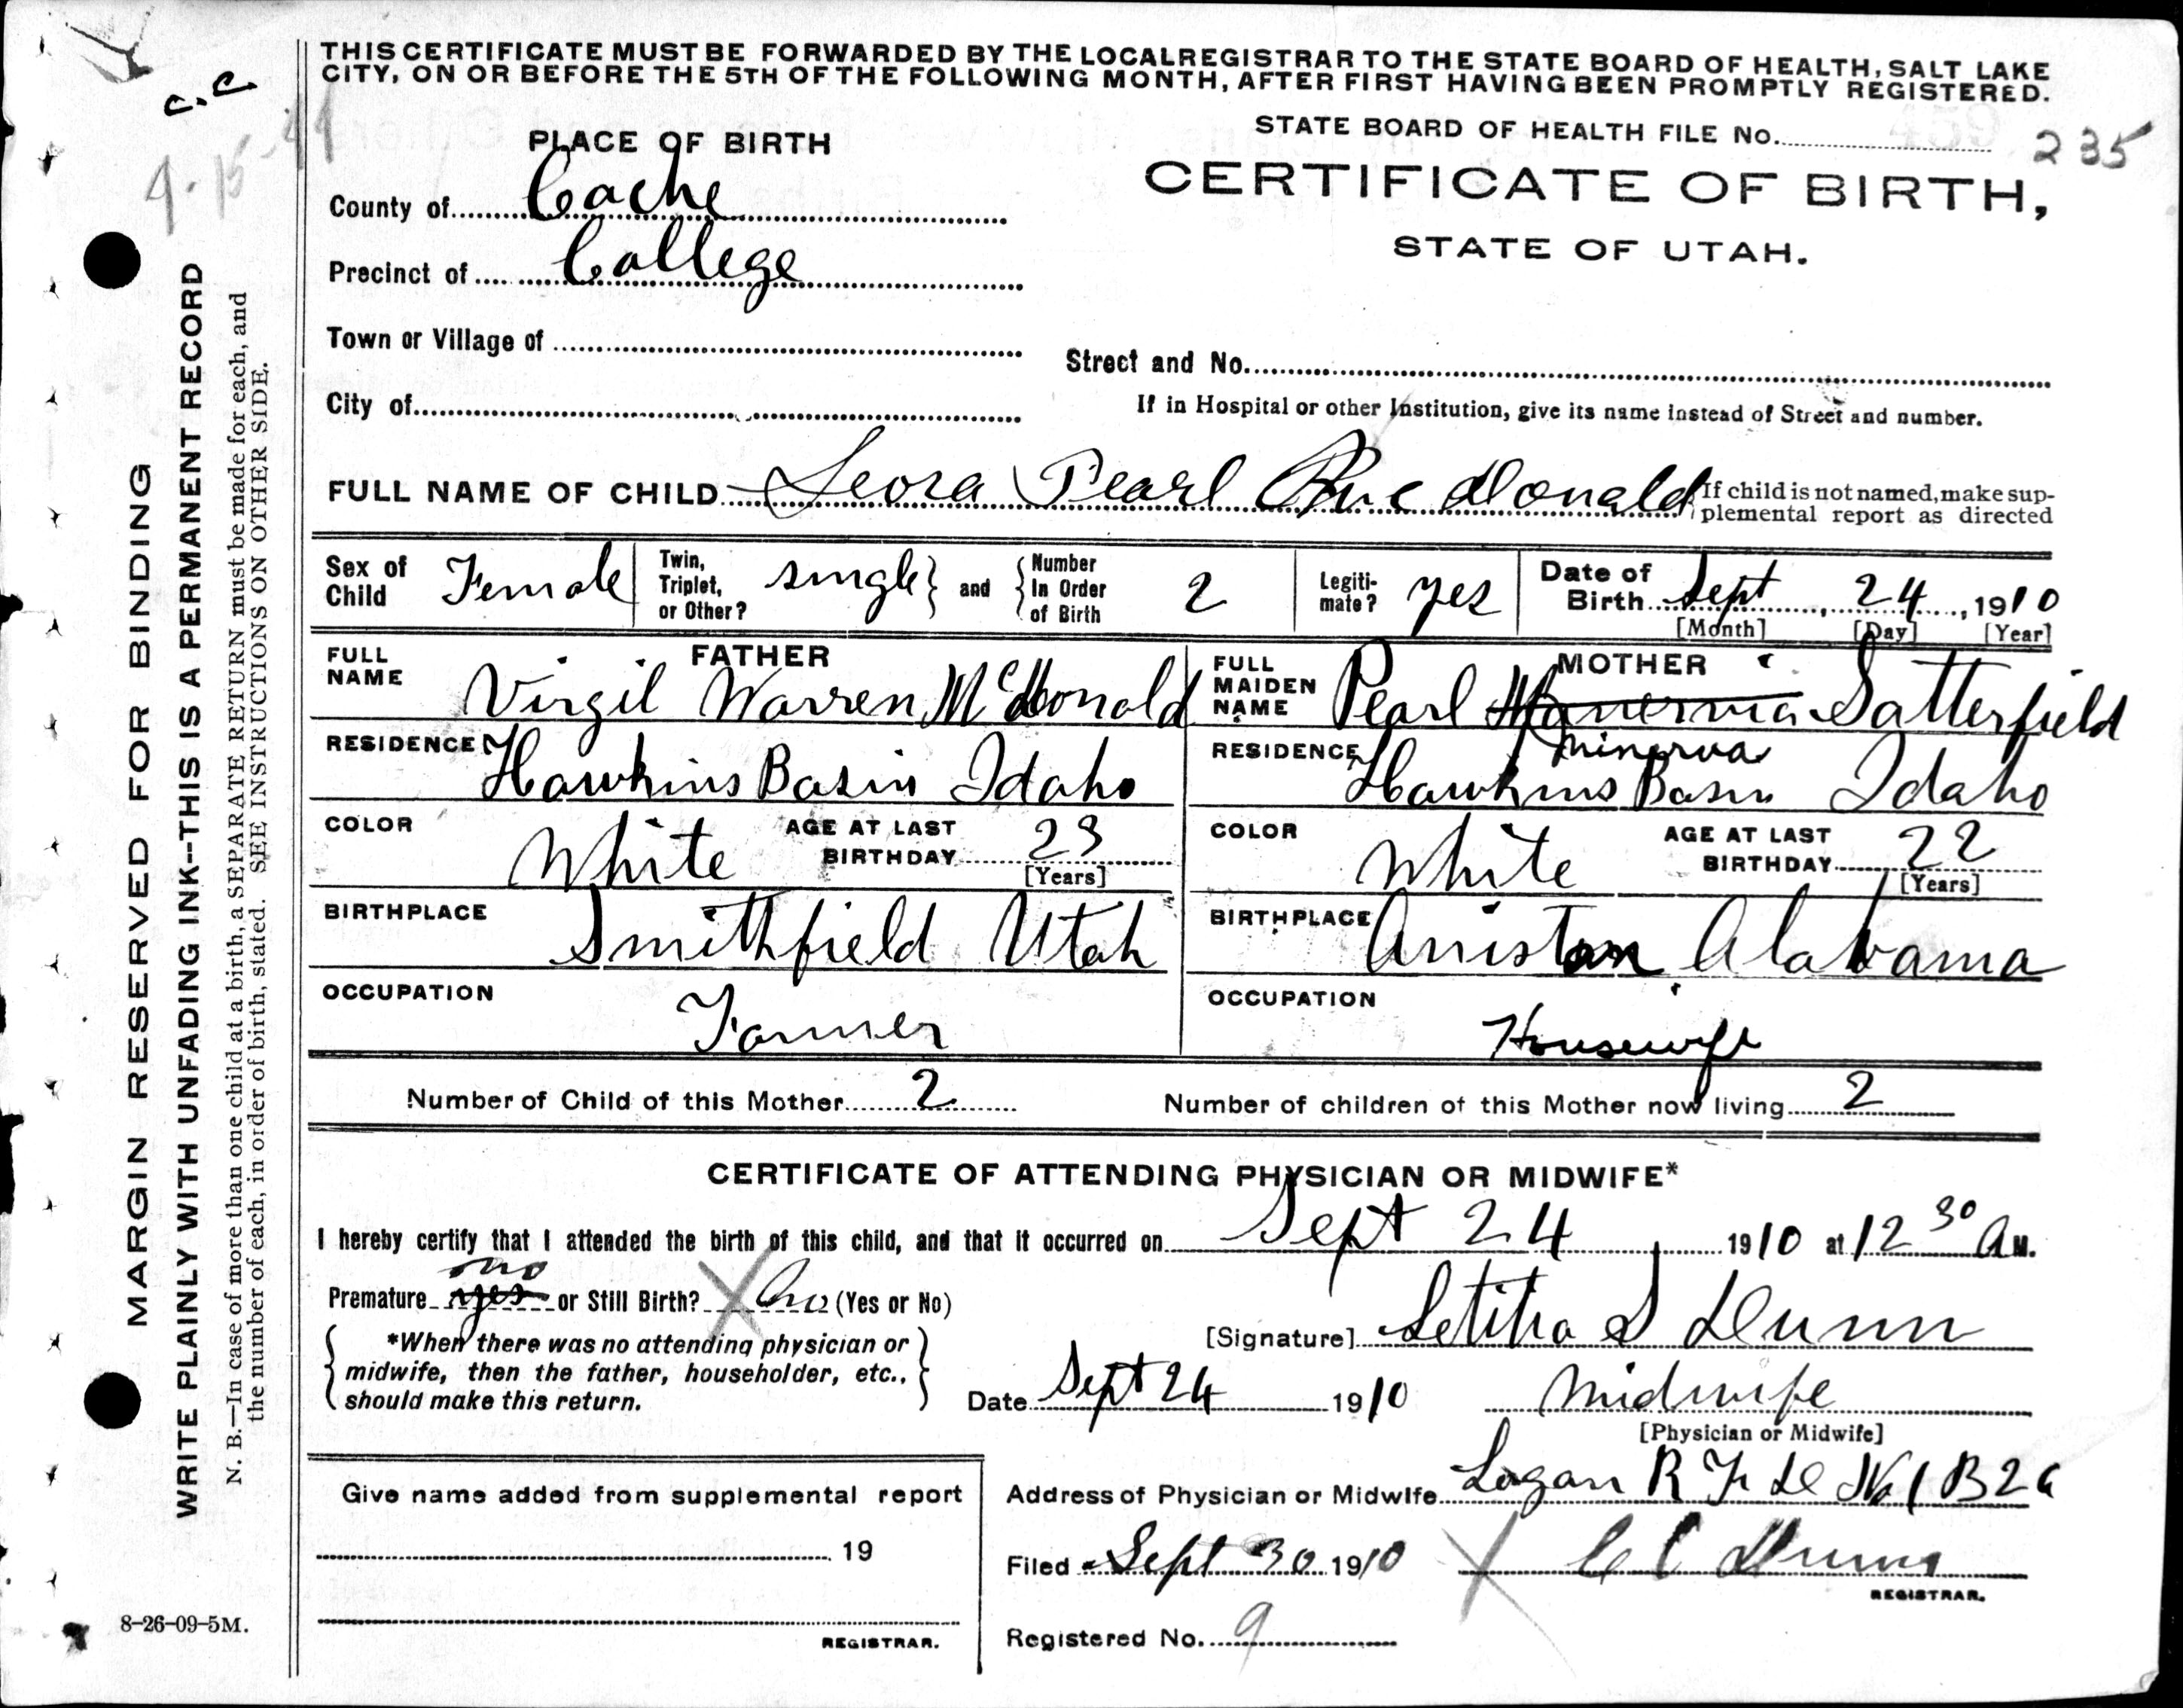 THIS CERTIFICATE MUST BE FORWARDED BY THE LOCAL REGISTRAR TO THE STATE BOARD OF HEALTH, SALT LAKE
CITY, ON OR BEFORE THE 5TH OF THE FOLLOWING MONTH, AFTER FIRST HAVING BEEN PROMPTLY REGISTERED.
c.c
STATE BOARD OF HEALTH FILE No. 235
PLACE OF BIRTH
CERTIFICATE OF BIRTH,
STATE OF UTAH.
County of Cache
Precinct of College
Town or Village of
Street and No.
City of
If in Hospital or other Institution, give its name instead of Street and number.
FULL NAME OF CHILD Leora Pearl Mc Donald
If child is not named, make sup-
plemental report as directed
Sex of Child Female
Twin, Triplet, or Other? single and Number In Order of Birth 2
Legiti-mate? yes
Date of Birth Sept, 24, 1910
[Month] [Day] [Year]
FATHER
FULL NAME Virgil Warren McDonald
MOTHER
FULL MAIDEN NAME Pearl Manervia Satterfield
Minerva
RESIDENCE Hawkins Basin Idaho
RESIDENCE Hawkins Basin Idaho
COLOR White AGE AT LAST BIRTHDAY 23 [Years]
COLOR White AGE AT LAST BIRTHDAY 22 [Years]
BIRTHPLACE Smithfield Utah
BIRTHPLACE Aniston Alabama
OCCUPATION Farmer
OCCUPATION Housewife
Number of Child of this Mother 2
Number of children of this Mother now living 2
CERTIFICATE OF ATTENDING PHYSICIAN OR MIDWIFE*
I hereby certify that I attended the birth of this child, and that it occurred on Sept 24 1910 at 12 30 A M.
no
Premature yes or Still Birth? no (Yes or No)
*When there was no attending physician or
midwife, then the father, householder, etc.,
should make this return.
[Signature] Letitia S Dunn
Date Sept 24 1910
Midwife
[Physician or Midwife]
Give name added from supplemental report
19
REGISTRAR.
Address of Physician or Midwife Logan R F D No 1 B 2
Filed Sept 30 1910
C C Dunn
REGISTRAR.
Registered No. 9
MARGIN RESERVED FOR BINDING
WRITE PLAINLY WITH UNFADING INK--THIS IS A PERMANENT RECORD
N. B.—In case of more than one child at a birth, a SEPARATE RETURN must be made for each, and
the number of each, in order of birth, stated. SEE INSTRUCTIONS ON OTHER SIDE.
8-26-09-5M.